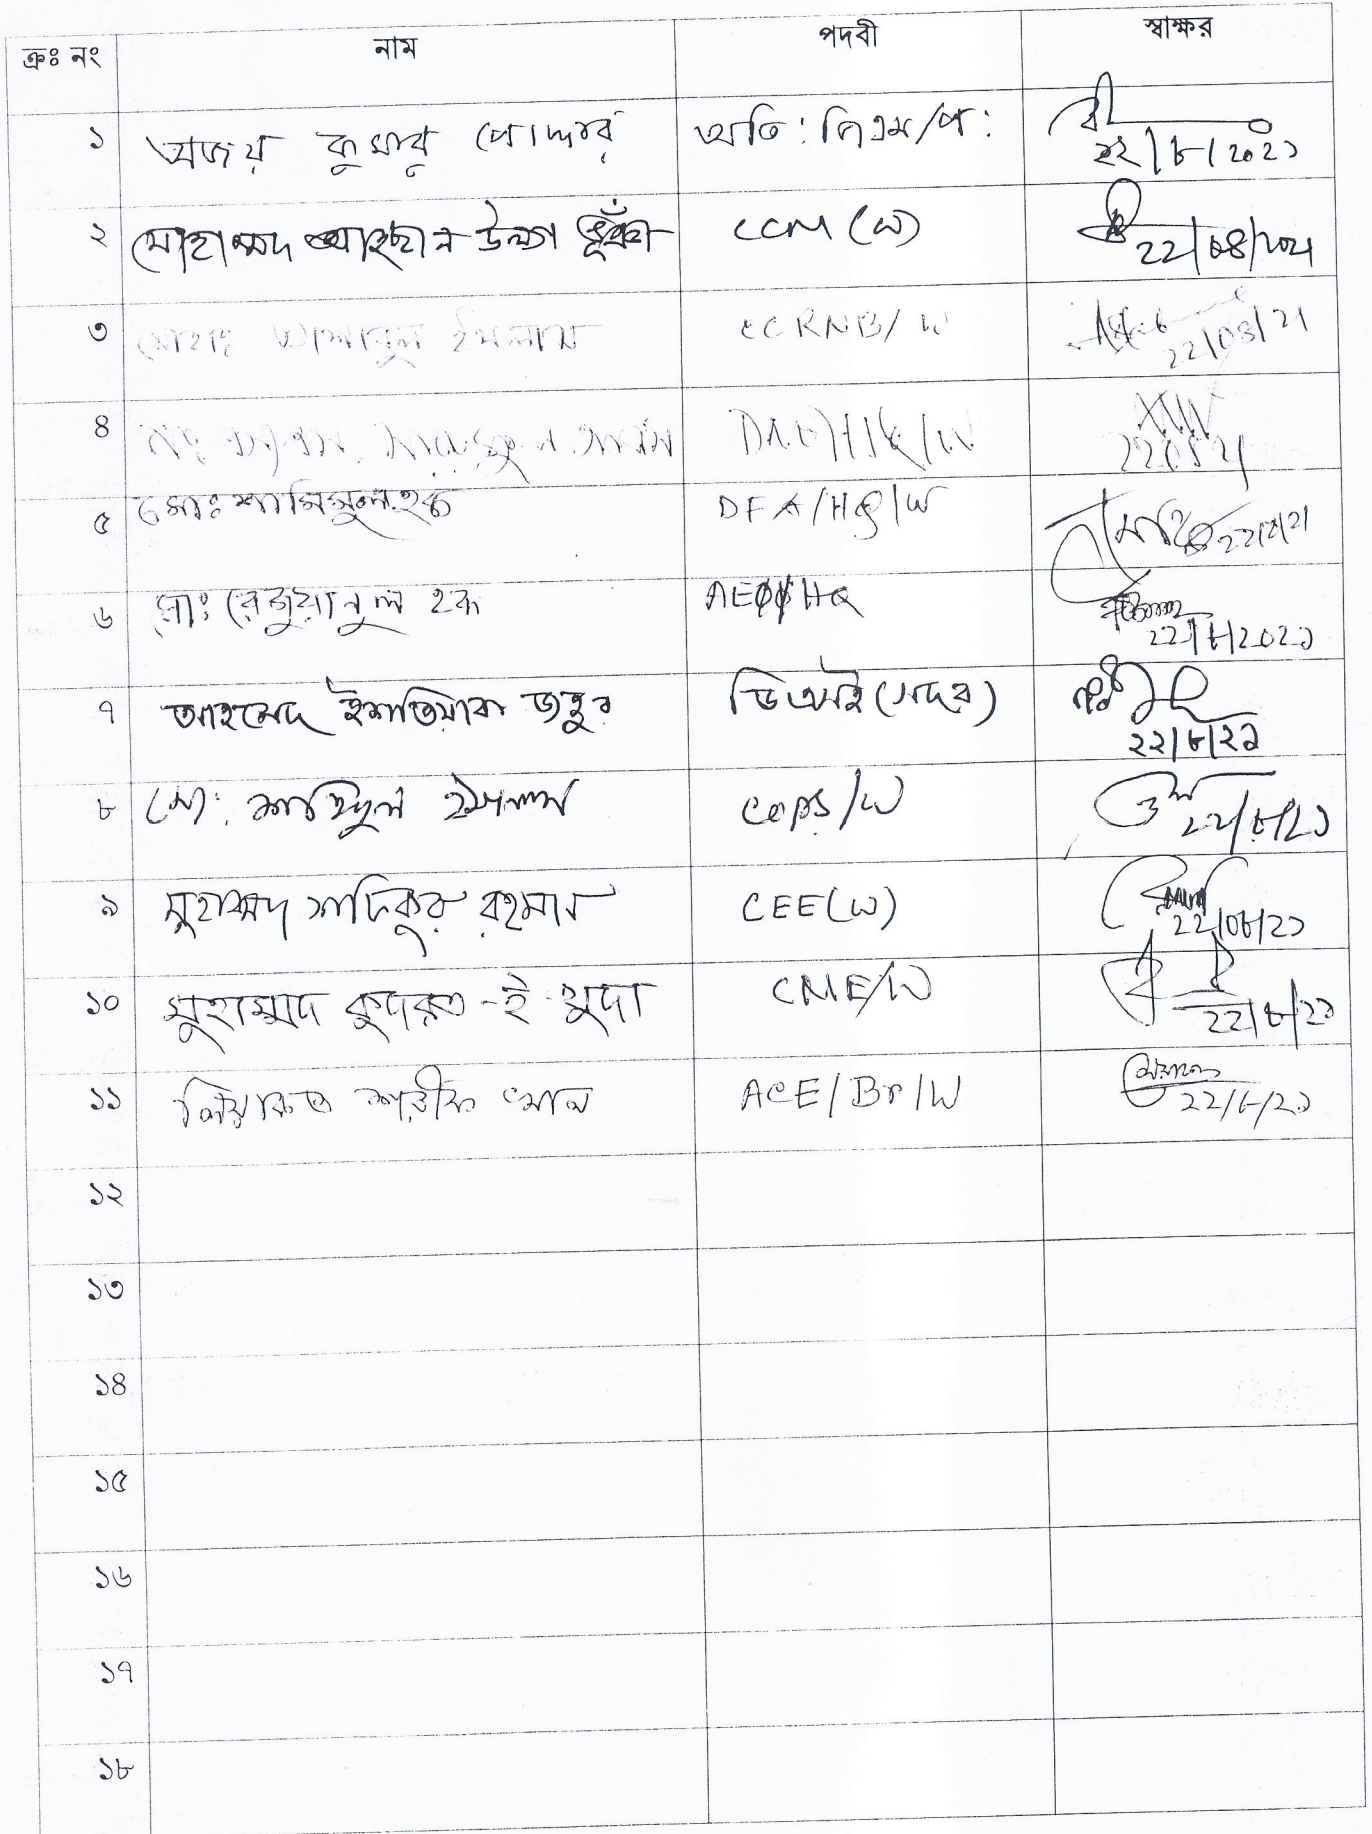 ক্রঃ নং নাম পদবী স্বাক্ষর
১ অজয় কুমার পোদ্দার অতি: জিএম/প: ২২/৮/২০২১
২ মোহাম্মদ আহছান উল্যা ভূঁঞা CCM (W) 22/08/2021
৩ মোহাঃ আশাবুল ইসলাম CCRNB/W 22/08/21
৪
৫ মোঃ শামিমুল হক DFA/HQ/W 22/8/21
৬ মোঃ রেজুয়ানুল হক AEO/HQ ২২/৮/২০২১
৭ আহমেদ ইশতিয়াক জহুর ডিআই (সদর) ২২/৮/২১
৮ মো: শহিদুল ইসলাম COPS/W ২২/৮/২১
৯ মুহাম্মদ শফিকুর রহমান CEE(W) ২২/০৮/২১
১০ মুহাম্মদ কুদরত-ই-খুদা CME/W ২২/৮/২১
১১ লিয়াকত শরীফ খান ACE/Br/W ২২/৮/২১
১২
১৩
১৪
১৫
১৬
১৭
১৮